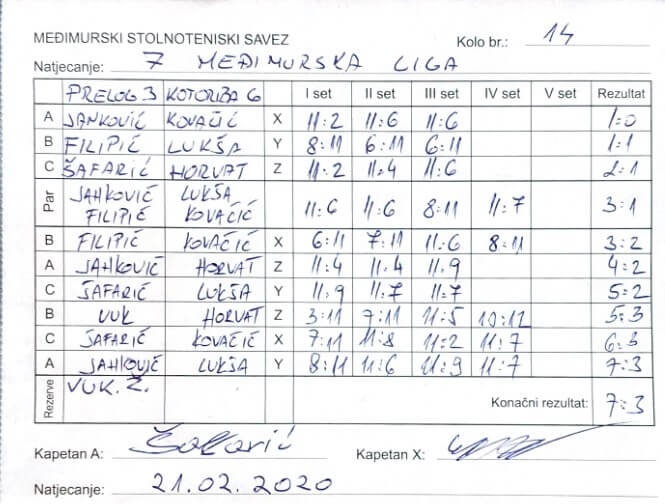 MEĐIMURSKI STOLNOTENISKI SAVEZ Kolo br.: 14
Natjecanje: 7 MEĐIMURSKA LIGA
PRELOG 3 KOTORIBA 6 I set II set III set IV set V set Rezultat
A JANKOVIĆ KOVAČIĆ X 11:2 11:6 11:6 1:0
B FILIPIĆ LUKŠA Y 8:11 6:11 6:11 1:1
C ŠAFARIĆ HORVAT Z 11:2 11:4 11:6 2:1
Par JANKOVIĆ LUKŠA
FILIPIĆ KOVAČIĆ 11:6 11:6 8:11 11:7 3:1
B FILIPIĆ KOVAČIĆ X 6:11 7:11 11:6 8:11 3:2
A JANKOVIĆ HORVAT Z 11:4 11:4 11:9 4:2
C ŠAFARIĆ LUKŠA Y 11:9 11:7 11:7 5:2
B VUK HORVAT Z 3:11 7:11 11:5 10:12 5:3
C ŠAFARIĆ KOVAČIĆ X 7:11 11:8 11:2 11:7 6:3
A JANKOVIĆ LUKŠA Y 8:11 11:6 11:9 11:7 7:3
Rezerve VUK.Ž. Konačni rezultat: 7:3
Kapetan A: Šafarić Kapetan X:
Natjecanje: 21.02.2020